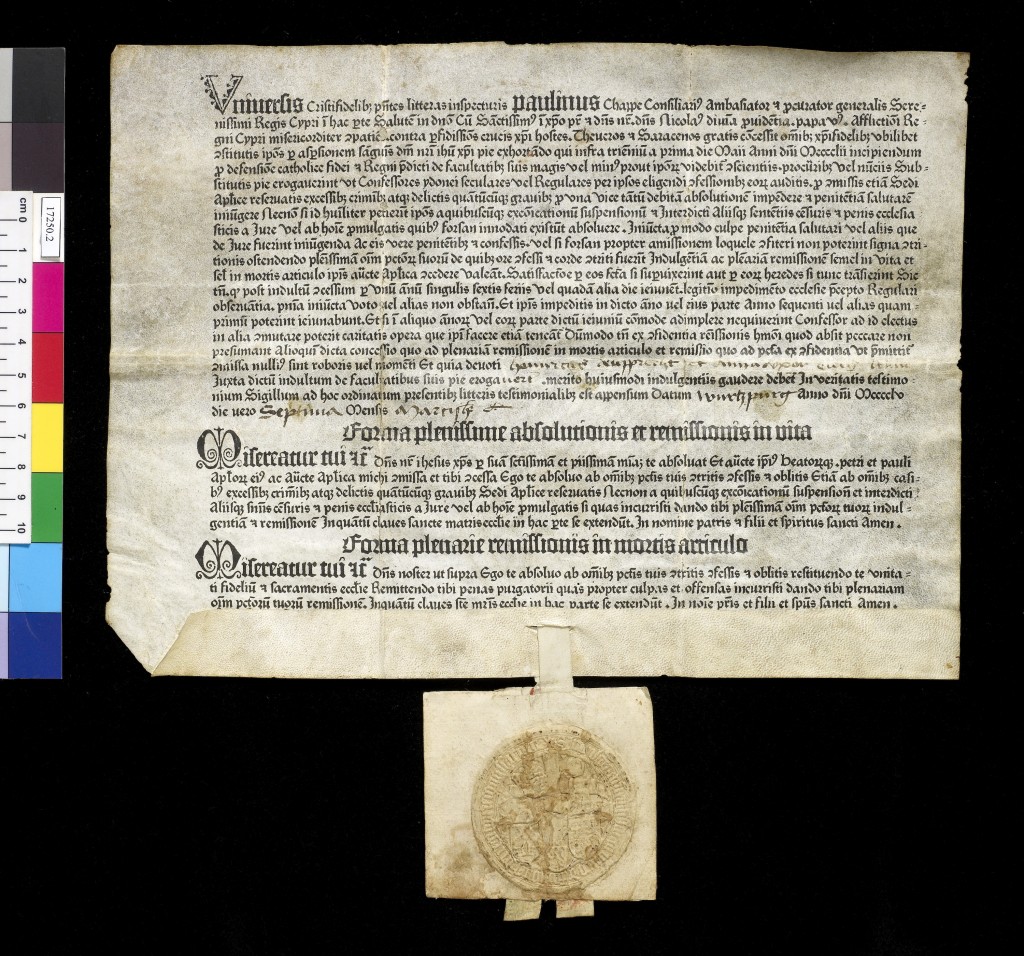 Vniuersis Cristifidelibꝫ pñtes litteras inspecturis paulinus Chappe Consiliariꝰ Ambasiator ⁊ ꝓcurator generalis Sere-
nissimi Regis Cypri ĩ hac ꝑte Salutẽ in dnõ Cũ Sãctissimꝰ ĩ xp̃o pr̃ ⁊ dñs nr̃. dñs Nicolaꝰ diuĩa ꝓuidẽtia. papa vꝰ. Afflictiõi Re-
gni Cypri misericorditer ꝯpatiẽs. contra ꝑfidissiõs crucis xp̃i hostes. Theucros ⁊ Saracenos gratis cõcessit om̃ibꝫ xp̃ifidelibꝫ vbilibet
ꝯstitutis ip̃os ꝑ aspsionem sãguĩs dñi nr̃i ihũ xp̃i pie exhortãdo qui infra trieñiũ a prima die Maii Anni dñi Mcccclii incipiendum
ꝓ defensiõe catholice fidei ⁊ Regni p̃dicti de facultatibꝫ suis magis vel minꝰ prout ip̃oꝝ videbit̃ ꝯscientiis. ꝓcũribꝫ vel nũciis Sub-
stitutis pie erogauerint vt Confessores ydonei seculares vel Regulares per ipsos eligendi ꝯfessionibꝫ eoꝝ auditis. ꝓ ꝯmissis etiã Sedi
Aplice reseruatis excessibꝫ criĩbꝫ atqꝫ delictis quãtũcũqꝫ grauibꝫ ꝓ vna vice tãtũ debitã absolutionẽ impẽdere ⁊ penitẽtiã salutarẽ
iniũgere Necnõ si id hũiliter petierit ip̃os a quibuscũqꝫ excõicationũ suspensionũ ⁊ Interdicti Aliisqꝫ sentẽtiis cẽsuris ⁊ penis ecclesia
sticis a Jure vel ab hoĩe ꝓmulgatis quibꝰ forsan innodati existũt absoluere. Iniũcta ꝓ modo culpe penitẽtia salutari vel aliis que
de Jure fuerint iniũgenda Ac eis vere penitẽtibꝫ ⁊ confessis. vel si forsan propter amissionem loquele ꝯfiteri non poterint signa ꝯtri-
tionis ostendendo plẽissimã oĩm pctõꝝ suorũ de quibꝫ ore ꝯfessi ⁊ corde ꝯtriti fuerĩt Indulgẽtiã ac plẽariã remissionẽ semel in vita et
sel̃ in mortis articulo ip̃is aũcte Aplica ꝯcedere valeãt. Satisfactõe ꝑ eos fcta si suꝑuixerint aut ꝑ eoꝝ heredes si tunc trãsierint Sic
tñ. qꝫ post indultũ ꝯcessum ꝑ vnũ ãnũ singulis sextis feriis vel quadã alia die ieiunẽt. legitĩo impedimẽto ecclesie p̃cepto Regulari
obseruãtia. pñia iniũcta voto vel alias non obstañ. Et ip̃is impeditis in dicto ãno vel eius parte Anno sequenti vel alias quam-
primũ poterint ieiunabunt. Et si ĩ aliquo ãnoꝝ vel eoꝝ parte dictũ ieiuniũ cõmode adimplere nequiuerint Confessor ad id electus
in alia ꝯmutare poterit caritatis opera que ip̃i facere etiã teneãt̃ Dũmodo tñ ex ꝯfidentia rẽissionis hmõi quod absit peccare non
presumant Alioqui dicta concessio quo ad plenariam remissionẽ in mortis articulo et remissio quo ad pctã ex ꝯfidentia vt p̃mittit̃
ꝯmissa nulliꝰ sint roboris vel momẽti Et quia deuoti
Juxta dictũ indultum de facultatibus suis pie erogauerũt. merito huiusmodi indulgentiis gaudere debet̃ In veritatis testimo-
nium Sigillum ad hoc ordinatum presentibꝫ litteris testimonialibꝫ est appensum Datum wurtzpurg Anno dñi Mcccclv
die vero Septima Mensis Marcij
Forma plenissime absolutionis et remissionis in vita
Misereatur tui ⁊c̃ Dñs nr̃ ihesus xp̃s ꝑ suã sctissimã et piissimã miã; te absoluat Et aũcte ip̃iꝰ beatoꝝqꝫ. petri et pauli
Aploꝝ eiꝰ ac Aũcte Aplica michi ꝯmissa et tibi ꝯcessa Ego te absoluo ab om̃ibꝫ pctis tuis ꝯtritis ꝯfessis ⁊ oblitis Etiã ab om̃ibꝫ casi-
bꝰ excessibꝫ crimĩbꝫ atqꝫ delictis quãtũcũqꝫ grauibꝫ Sedi Aplice reseruatis Necnon a quibuscũqꝫ excõicationũ suspensioñ et interdicti
Aliisqꝫ sñiis cẽsuris ⁊ penis eccl̃iasticis a Jure vel ab hoĩe ꝓmulgatis si quas incurristi dando tibi plẽissimã oĩm pctõꝝ tuoꝝ indul-
gentiã ⁊ remissionẽ Inquãtũ claues sancte matris eccl̃ie in hac ꝑte se extendũt. In nomine patris ⁊ filii et spiritus sancti Amen.
Forma plenarie remissionis in mortis articulo
Misereatur tui ⁊c̃ Dñs noster ut supra Ego te absoluo ab om̃ibꝫ pctis tuis ꝯtritis ꝯfessis ⁊ oblitis restituendo te vnita-
ti fideliũ ⁊ sacramentis eccl̃ie Remittendo tibi penas purgatorii quas propter culpas et offensas incurristi dando tibi plenariam
oĩm pctõrũ tuorũ remissionẽ. Inquãtũ claues scte mr̃is eccl̃ie in hac parte se extendũt. In noĩe pr̃is et filii et sp̃us sancti Amen.
17250.2
cm 0
1
2
3
4
5
6
7
8
9
10